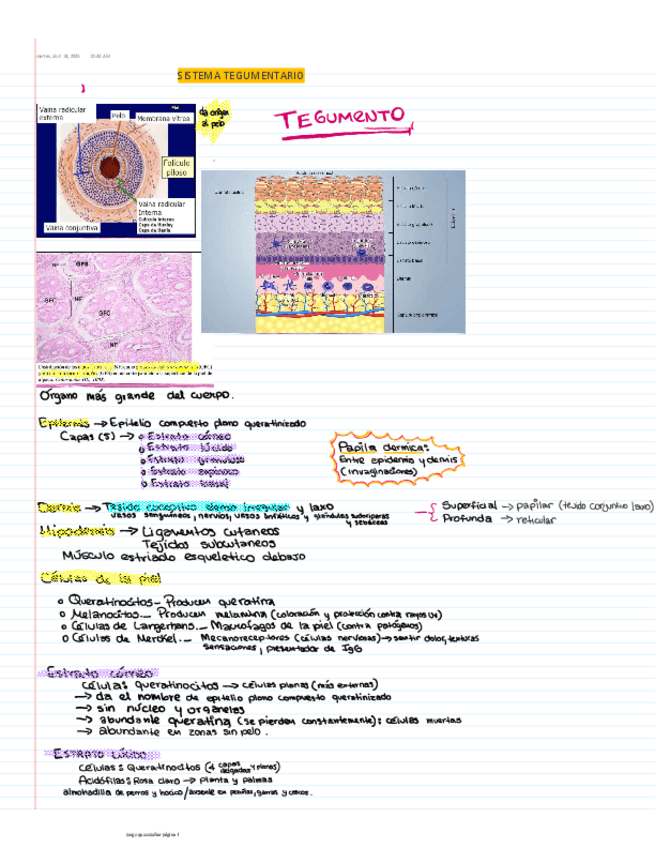 10:40 AM
SISTEMA TEGUMENTARIO
TEGUMENTO
da origen
al pelo
Piel
Vaina radicular
externa
Pelo
Membrana vítrea
Folículo
piloso
Vaina radicular
Interna
Cutícula interna
Capa de Huxley
Capa de Henle
Vaina conjuntiva
GFB
GFC
NF
GFC
NF
Órgano más grande del cuerpo.
Epidermis → Epitelio compuesto plano queratinizado
Capas (5) → Estrato córneo
Estrato lúcido
Estrato granuloso
Estrato espinoso
Estrato basal
Papila dermica:
Entre epidermis y dermis
(invaginaciones)
Dermis → Tejido conectivo denso irregular y laxo
vasos sanguíneos, nervios, vasos linfáticos y glándulas sudoríparas
y sebáceas
Superficial → papilar (tejido conjuntivo laxo)
Profunda → reticular
Hipodermis → Ligamentos cutaneos
Tejidos subcutaneos
Músculo estriado esquelético debajo
Células de la piel
Queratinocitos - Producen queratina
Melanocitos.- Producen melanina (coloración y protección contra rayos UV)
Células de Langerhans.- Macrofagos de la piel (contra patógenos)
Células de Merckel.- Mecanoreceptores (células nerviosas) → sentir dolor, texturas
sensaciones, presentador de IgG
Estrato córneo
Células queratinocitos → células planas (más externas)
→ da el nombre de epitelio plano compuesto queratinizado
→ sin núcleo y organelos
→ abundante queratina (se pierden constantemente): células muertas
→ abundante en zonas sin pelo.
Estrato lúcido
Células: Queratinocitos (4 capas delgadas y planas)
Acidófilas: Rosa claro → planta y palmas
almohadilla de perros y hocico / ausente en